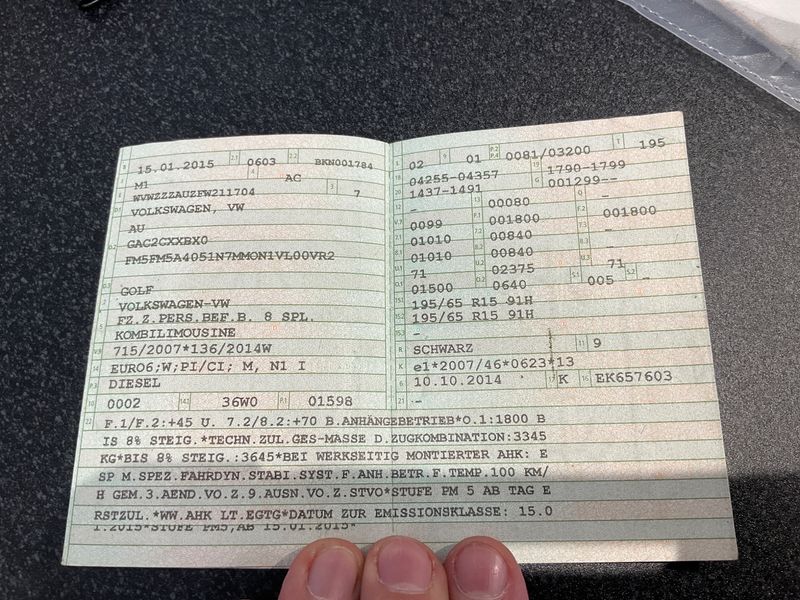 B 15.01.2015 2.1 0603 2.2 BKN001784
J M1 4 AC
E WVWZZZAUZFW211704 3 7
D.1 VOLKSWAGEN, VW
AU
D.2 GAC2CXXBX0
FM5FM5A4051N7MMON1VL00VR2
D.3 GOLF
2 VOLKSWAGEN-VW
5 FZ.Z.PERS.BEF.B. 8 SPL.
KOMBILIMOUSINE
V.9 715/2007*136/2014W
14 EURO6;W;PI/CI; M, N1 I
P.3 DIESEL
10 0002 14.1 36W0 P.1 01598
L 02 9 01 P.2 P.4 0081/03200 T 195
18 04255-04357 19 1790-1799
20 1437-1491 G 001299--
12 - 13 00080 Q -
V.7 0099 F.1 001800 F.2 001800
7.1 01010 7.2 00840 7.3 -
8.1 01010 8.2 00840 8.3 -
U.1 71 U.2 02375 U.3 71
O.1 01500 O.2 0640 S.1 005 S.2 -
15.1 195/65 R15 91H
15.2 195/65 R15 91H
15.3 -
R SCHWARZ 11 9
K e1*2007/46*0623*13
6 10.10.2014 17 K 16 EK657603
21 -
22 F.1/F.2:+45 U. 7.2/8.2:+70 B.ANHÄNGEBETRIEB*O.1:1800 B
IS 8% STEIG.*TECHN.ZUL.GES-MASSE D.ZUGKOMBINATION:3345
KG*BIS 8% STEIG.:3645*BEI WERKSEITIG MONTIERTER AHK: E
SP M.SPEZ.FAHRDYN.STABI.SYST.F.ANH.BETR.F.TEMP.100 KM/
H GEM.3.AEND.VO.Z.9.AUSN.VO.Z.STVO*STUFE PM 5 AB TAG E
RSTZUL.*WW.AHK LT.EGTG*DATUM ZUR EMISSIONSKLASSE: 15.0
1.2015*STUFE PM5,AB 15.01.2015*